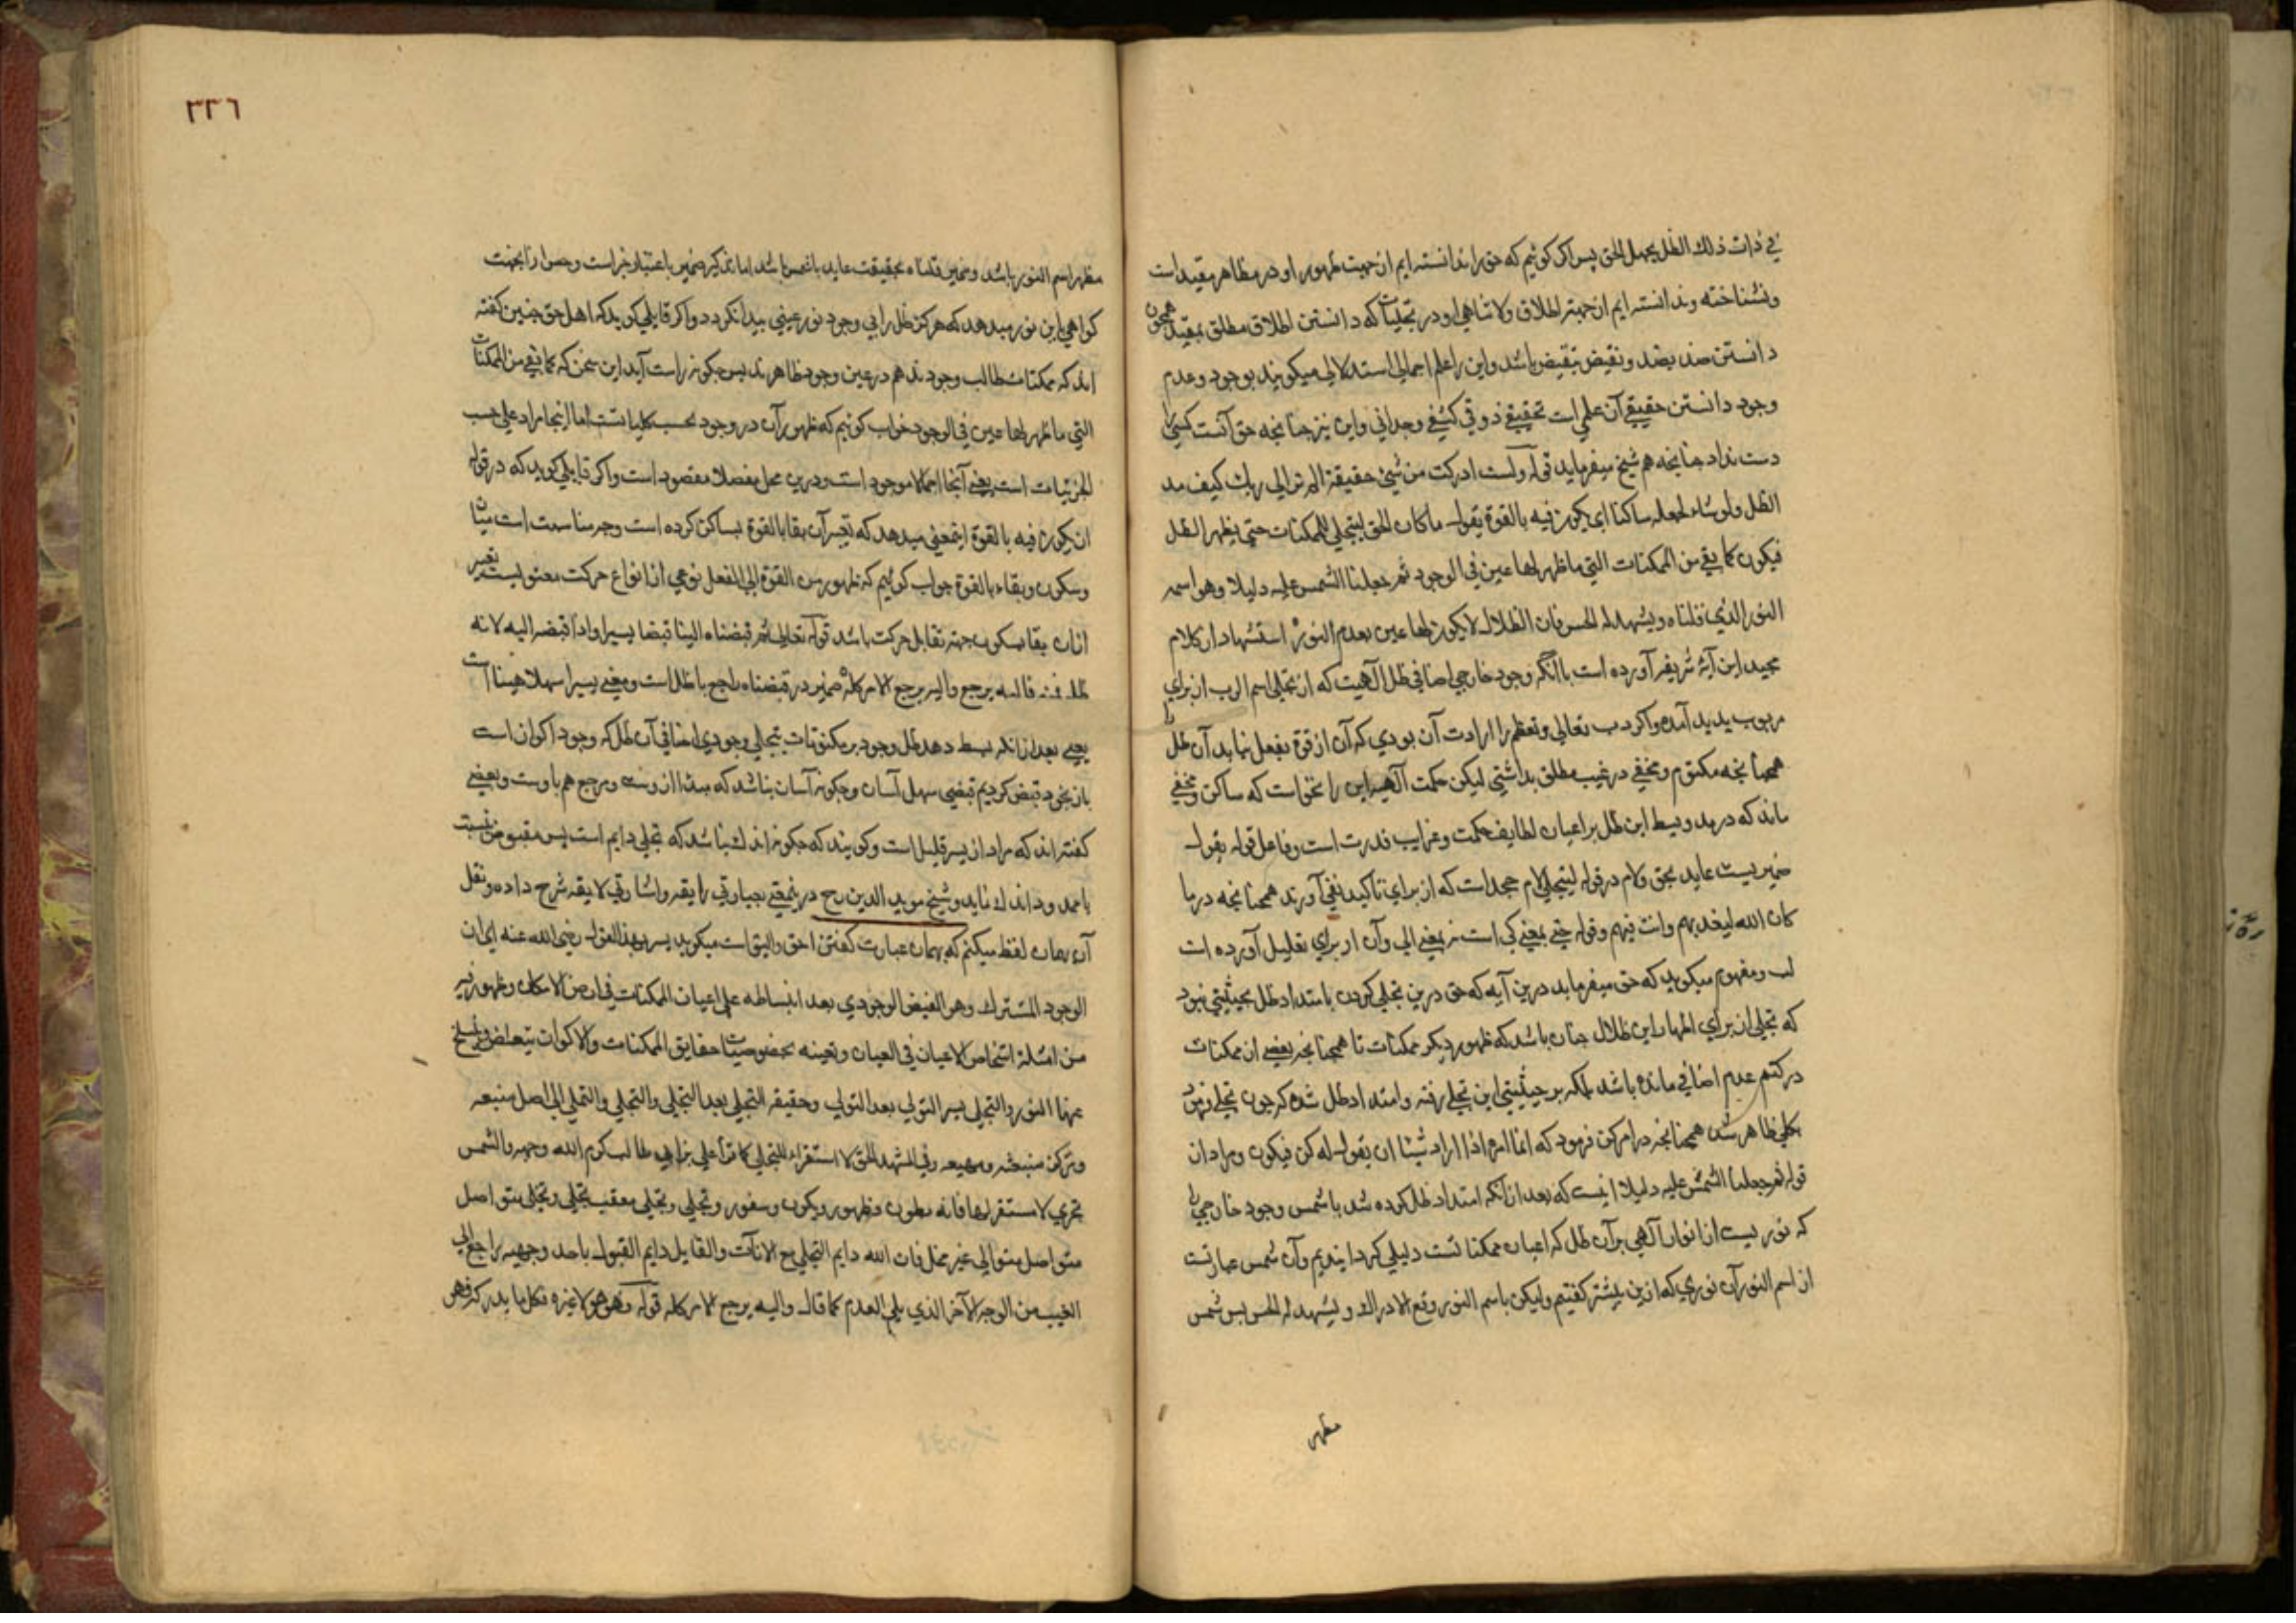 في ذات ذلك الظل يجهل الحق پس اكر كوئيم كه حق را ندانسته ايم از جهت ظهور او در مظاهر مقيد است
ونشناخته وندانسته ايم از جهة اطلاق ولاتناهي او در تجليات كه دانستن اطلاق مطلق بمقيد همچون
دانستن ضد بضد ونقيض بنقيض باشد واين را علم اجمالي استدلالي ميكويند بوجود وعدم
وجود دانستن حقيقي آن علمي است تحقيقي ذوقي كشفي وجداني واين نيز چنانچه حق آنست كسي را
دست نداد چنانچه هم شيخ ميفرمايد قوله ولست ادركت من شيئ حقيقة الم تر الى ربك كيف مد
الظل ولو شاء لجعله ساكنا اى يكون فيه بالقوة يقول ما كان الحق ليتجلي للممكنات حتى يظهر الظل
فيكون كما بقي من الممكنات التي ما ظهر لها عين في الوجود ثم جعلنا الشمس عليه دليلا وهو اسمه
النور الذي قلناه ويشهد له الحس فان الظلال لا يكون لها عين بعدم النور استشهاد از كلام
مجيد اين آيه شريفه آورده است باآنكه وجود خارجي اضافي ظل الهيت كه از تجلي اسم الرب از براي
مربوب پديد آمده واكر رب تعالى وتعظم را ارادت آن بودي كه آن از قوة بفعل نيايد آن ظل را
همچنانچه مكتوم ومخفي در غيب مطلق بداشتي ليكن حكمت آلهيه اين را نخواست كه ساكن ومخفي
ماند كه در مد وبسط اين ظل بر اعيان لطايف حكمت وغرايب قدرت است وفاعل قوله يقول
ضميريست عايد بحق ولام در قوله ليتجلي لام جحد است كه از براي تاكيد نفي آورند همچنانچه در ما
كان الله ليعذبهم وانت فيهم وقوله حتى بمعني كي است نه بمعني الى وآن از براي تعليل آورده است
لب ومفهوم ميكويد كه حق ميفرمايد درين آيه كه حق درين تجلي كردن بامتداد ظل بحيثيتي نبود
كه تجلي از براي اظهار اين ظلال چنان باشد كه ظهور ديكر ممكنات تا همچنانچه بعضي از ممكنات
در كتم عدم اضافي مانده باشد بلكه بر حيثيتي اين تجلي رفته وامتداد ظل شده كه چون تجلي فرمود
بكلي ظاهر شد همچنانچه در امر كن فرمود كه انما امره اذا اراد شيئا ان يقول له كن فيكون ومراد از
قوله ثم جعلنا الشمس عليه دليلا اينست كه بعد از آنكه امتداد ظل كرده شد باشمس وجود خارجي را
كه نوريست از انوار آلهي بر آن ظل كه اعيان ممكناتست دليلي كردانيديم وآن شمس عبارتست
از اسم النور آن نوري كه ازين پيشتر كفتيم وليكن باسم النور وقع الادراك ويشهد له الحس پس شمس
مظهر
٣٣٦
مظهر اسم النور باشد وضمير قلناه بحقيقت عايد باشمس باشد اما تذكير ضمير باعتبار خبر است وحس ازانجهت
كواهي باين نور ميدهد كه هركز ظل را بي وجود نور عيني پيدا نكردد واكر قايلي كويد كه اهل حق چنين كفته
اند كه ممكنات طالب وجودند هم در عين وجود ظاهرند پس چكونه راست آيد اين سخن كه كما بقي من الممكنات
التي ما ظهر لها عين في الوجود جواب كوئيم كه ظهور آن در وجود بحسب كلياتست اما اينجا مراد على حسب
الجزئيات است يعني آنجا اجمالا موجود است ودرين محل مفصلا مقصود است واكر قايلي كويد كه در قوله
ان يكون فيه بالقوة اينمعني ميدهد كه تفسير آن بقا بالقوة بساكن كرده است وجه مناسبت است ميان
وسكون وبقاء بالقوة جواب كوئيم كه ظهور من القوة الى الفعل نوعي از انواع حركت معنويست تعبير
ازان بقا بسكون جهة تقابل حركت باشد قوله تعالى ثم قبضناه الينا قبضا يسيرا واذا قبضه اليه لانه
ظله فمنه واليه يرجع واليه يرجع الامر كله ضمير در قبضناه راجع باظل است ومعني يسيرا سهلا هينا است
يعني بعد ازانكه بسط دهد ظل وجود بر مكنونات بتجلي وجودي اضافي آن ظل كه وجود اكوان است
باز بخود قبض كرديم قبضي سهل آسان وچكونه آسان نباشد كه مبدا ازوست ومرجع هم باوست وبعضي
كفته اند كه مراد از يسير قليل است وكويند كه چكونه اندك نباشد كه تجلي دايم است پس مقبوض نسبت
باممدود اندك نمايد وشيخ مويد الدين رح درينمعني بعبارتي رايقه واشارتي لايقه شرح داده ونقل
آن بهمان لفظ ميكنم كه بهمان عبارت كفتن احق واليق است ميكويد يسير بهذا القول رضي الله عنه الى ان
الوجود المشترك وهو الفيض الوجودي بعد انبساطه على اعيان الممكنات في ارض الامكان وظهور فيه
من امثلة اشخاص الاعيان في العيان وتعينه بخصوصيات حقايق الممكنات والاكوان
عنها النور والتجلي بسر التولي بعد التولي وحقيقة التجلي بعد التجلي والتجلي والتملي الى اصل منبعه
ومركز منبعثه ومهيعه وفي المشهد الحق لا استقرار للتجلي كما قرأ علي بن ابي طالب كرم الله وجهه والشمس
تجري لا مستقر لها فانه بطون وظهور وسفور وتجلي وتجلي معقب بتجلي وتجلي متواصل
متواصل متوالي غير مخل فان الله دايم التجلي مع الانات والقابل دايم القبول باحد وجهيه راجع الى
الغيب من الوجه الآخر الذي يلي العدم كما قال واليه يرجع الامر كله قوله وهو هو لا غيره فكل ما يدركه فهو